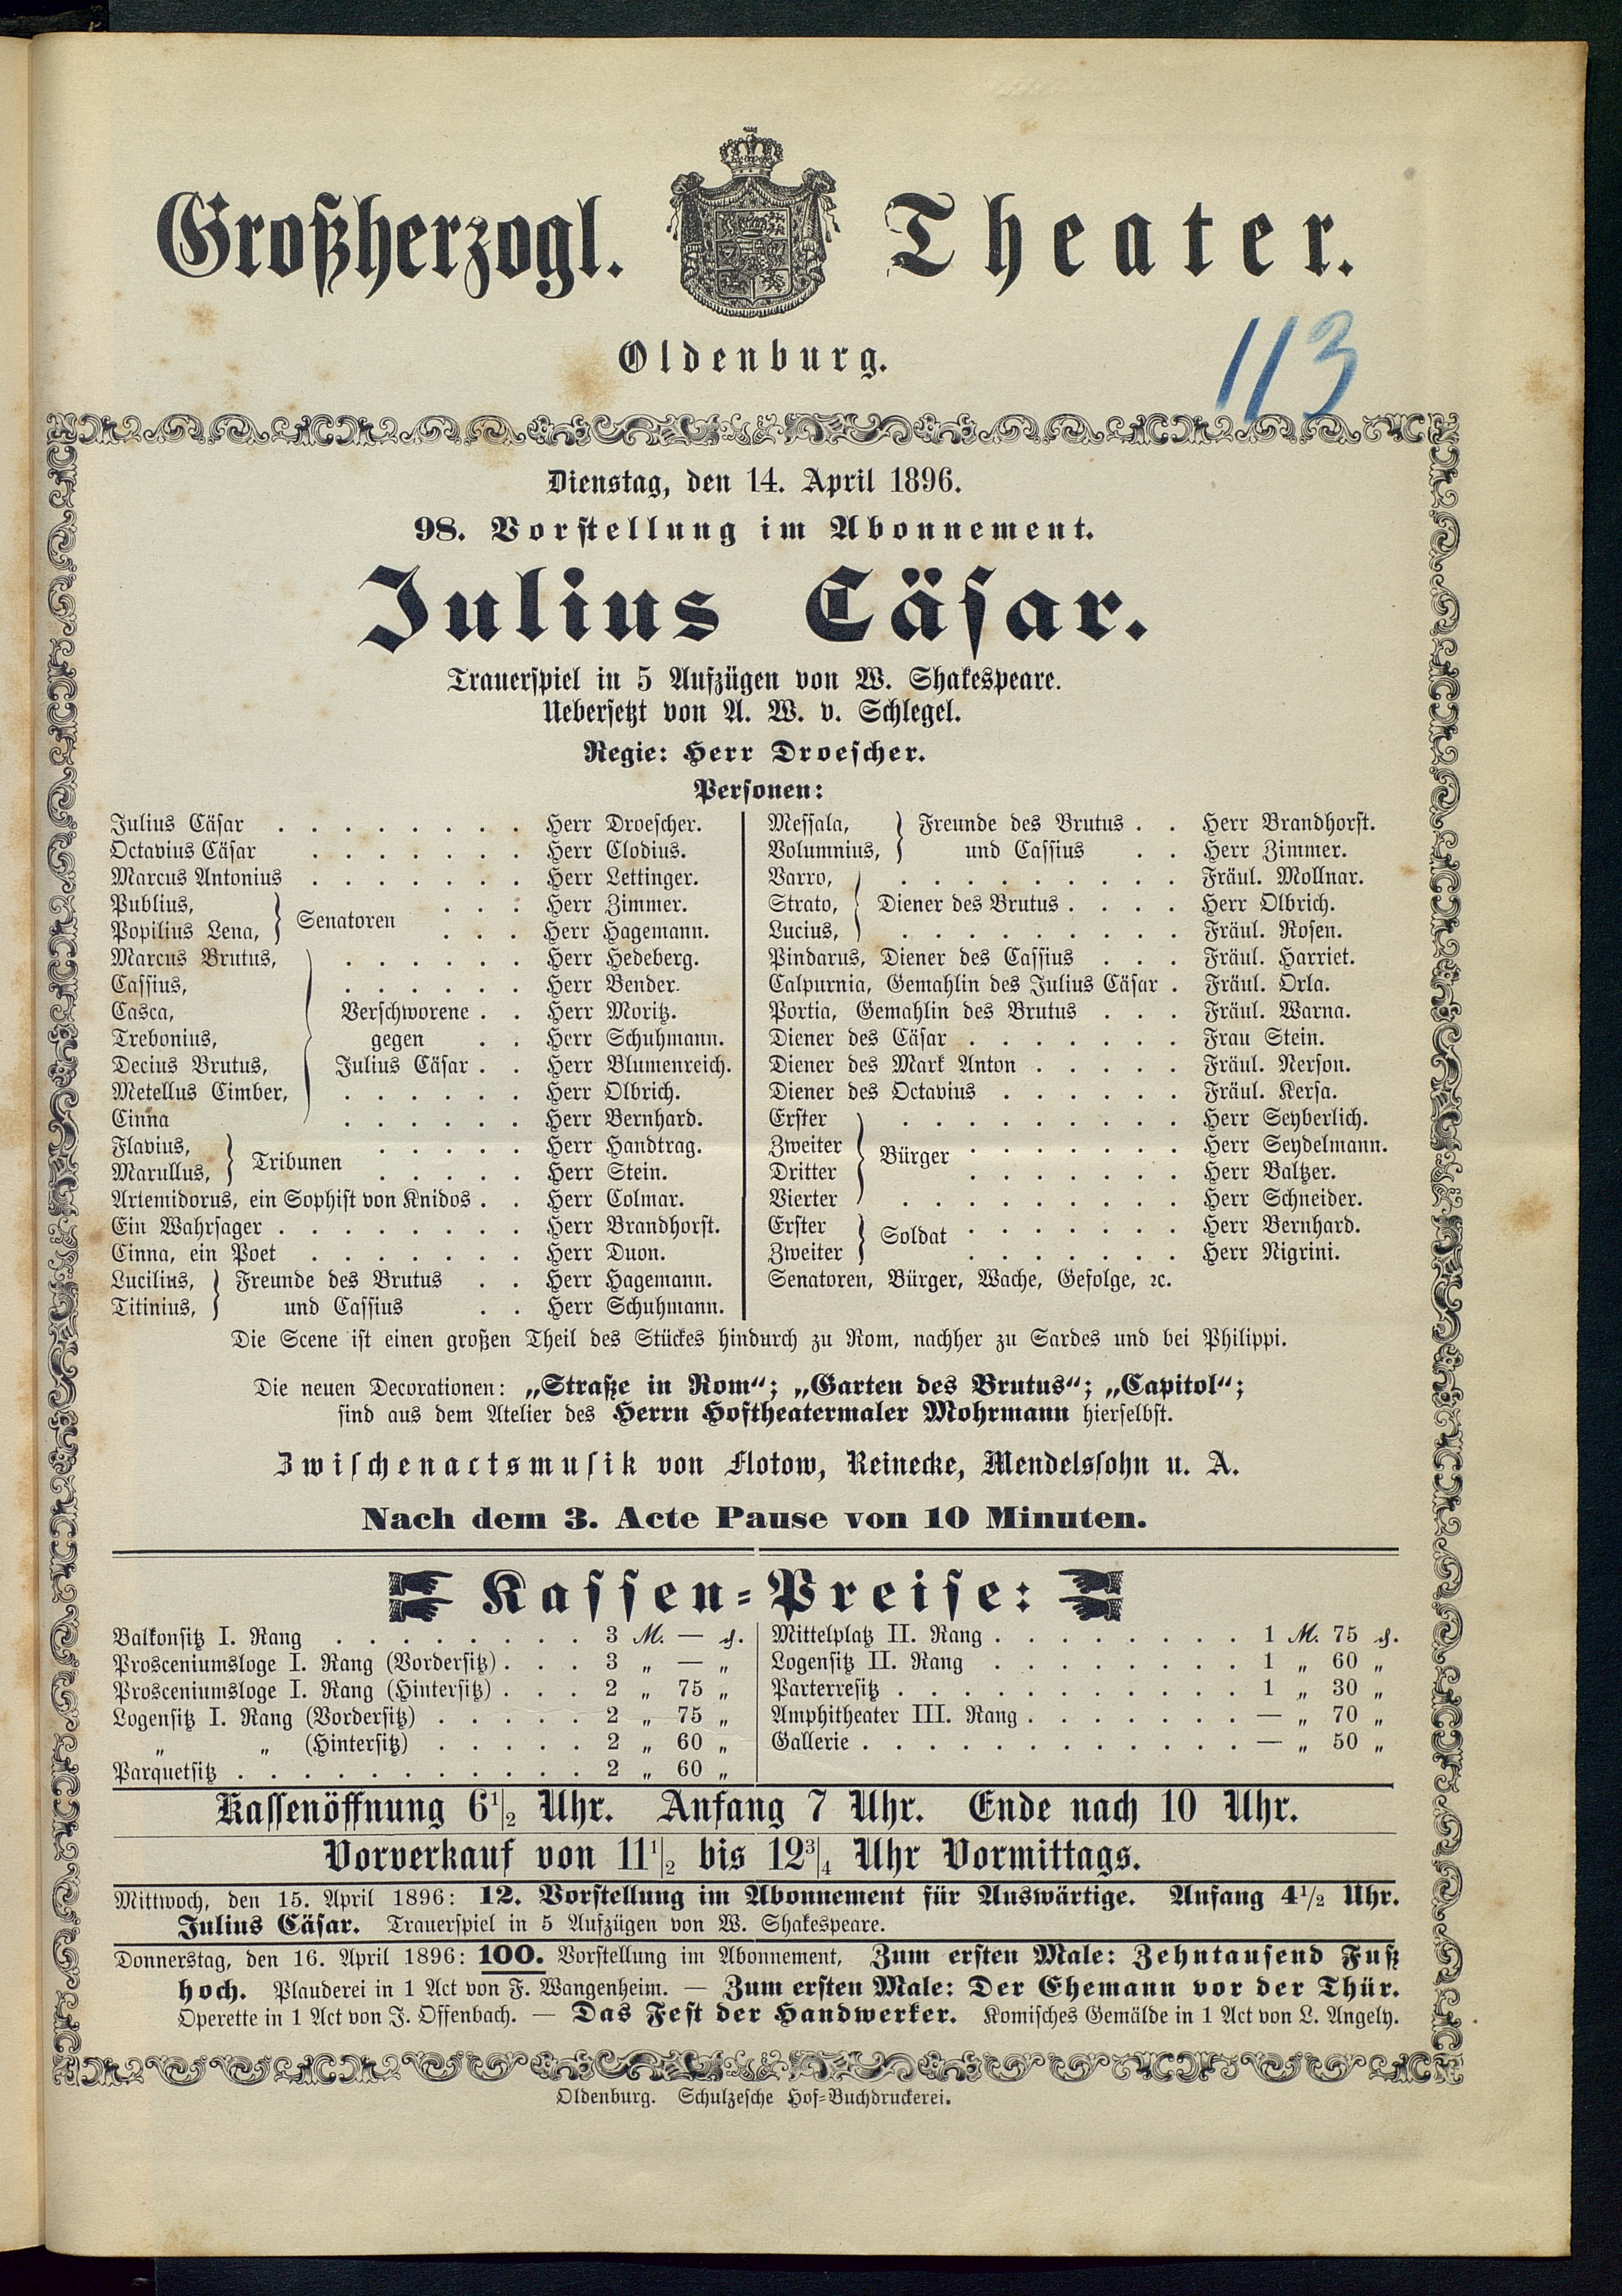 Großherzogl. Theater.
Oldenburg.
113
Dienstag, den 14. April 1896.
98. Vorstellung im Abonnement.
Julius Cäsar.
Trauerspiel in 5 Aufzügen von W. Shakespeare.
Uebersetzt von A. W. v. Schlegel.
Regie: Herr Droescher.
Personen:
Julius Cäsar . . . . . . . . Herr Droescher.
Octavius Cäsar . . . . . . . Herr Clodius.
Marcus Antonius . . . . . . . Herr Lettinger.
Publius, } Senatoren . . . Herr Zimmer.
Popilius Lena, . . . Herr Hagemann.
Marcus Brutus, . . . . . . Herr Hedeberg.
Cassius, . . . . . . Herr Bender.
Casca, Verschworene . . Herr Moritz.
Trebonius, gegen . . Herr Schuhmann.
Decius Brutus, Julius Cäsar . . Herr Blumenreich.
Metellus Cimber, . . . . . . Herr Olbrich.
Cinna . . . . . . Herr Bernhard.
Flavius, } Tribunen . . . . . Herr Handtrag.
Marullus, . . . . . Herr Stein.
Artemidorus, ein Sophist von Knidos . . Herr Colmar.
Ein Wahrsager . . . . . . . . Herr Brandhorst.
Cinna, ein Poet . . . . . . . Herr Duon.
Lucilius, } Freunde des Brutus . . Herr Hagemann.
Titinius, und Cassius . . Herr Schuhmann.
Messala, } Freunde des Brutus . . Herr Brandhorst.
Volumnius, und Cassius . . Herr Zimmer.
Varro, . . . . . . . . . Fräul. Mollnar.
Strato, Diener des Brutus . . . . Herr Olbrich.
Lucius, . . . . . . . . . Fräul. Rosen.
Pindarus, Diener des Cassius . . . Fräul. Harriet.
Calpurnia, Gemahlin des Julius Cäsar . Fräul. Orla.
Portia, Gemahlin des Brutus . . . Fräul. Warna.
Diener des Cäsar . . . . . . . Frau Stein.
Diener des Mark Anton . . . . . Fräul. Nerson.
Diener des Octavius . . . . . . Fräul. Kersa.
Erster . . . . . . . . . Herr Seyberlich.
Zweiter } Bürger . . . . . . . Herr Seydelmann.
Dritter . . . . . . . Herr Baltzer.
Vierter . . . . . . . . . Herr Schneider.
Erster } Soldat . . . . . . . Herr Bernhard.
Zweiter . . . . . . . Herr Nigrini.
Senatoren, Bürger, Wache, Gefolge, ꝛc.
Die Scene ist einen großen Theil des Stückes hindurch zu Rom, nachher zu Sardes und bei Philippi.
Die neuen Decorationen: „Straße in Rom“; „Garten des Brutus“; „Capitol“;
sind aus dem Atelier des Herrn Hoftheatermaler Mohrmann hierselbst.
Zwischenactsmusik von Flotow, Reinecke, Mendelssohn u. A.
Nach dem 3. Acte Pause von 10 Minuten.
Kassen-Preise:
Balkonsitz I. Rang . . . . . . . . 3 M. — ₰.
Prosceniumsloge I. Rang (Vordersitz) . . . 3 „ — „
Prosceniumsloge I. Rang (Hintersitz) . . . 2 „ 75 „
Logensitz I. Rang (Vordersitz) . . . . . 2 „ 75 „
„ „ (Hintersitz) . . . . . 2 „ 60 „
Parquetsitz . . . . . . . . . . . 2 „ 60 „
Mittelplatz II. Rang . . . . . . . . 1 M. 75 ₰.
Logensitz II. Rang . . . . . . . . 1 „ 60 „
Parterresitz . . . . . . . . . . . 1 „ 30 „
Amphitheater III. Rang . . . . . . . — „ 70 „
Gallerie . . . . . . . . . . . . — „ 50 „
Kassenöffnung 6½ Uhr. Anfang 7 Uhr. Ende nach 10 Uhr.
Vorverkauf von 11½ bis 12¾ Uhr Vormittags.
Mittwoch, den 15. April 1896: 12. Vorstellung im Abonnement für Auswärtige. Anfang 4½ Uhr.
Julius Cäsar. Trauerspiel in 5 Aufzügen von W. Shakespeare.
Donnerstag, den 16. April 1896: 100. Vorstellung im Abonnement, Zum ersten Male: Zehntausend Fuß
hoch. Plauderei in 1 Act von F. Wangenheim. — Zum ersten Male: Der Ehemann vor der Thür.
Operette in 1 Act von J. Offenbach. — Das Fest der Handwerker. Komisches Gemälde in 1 Act von L. Angely.
Oldenburg. Schulzesche Hof-Buchdruckerei.